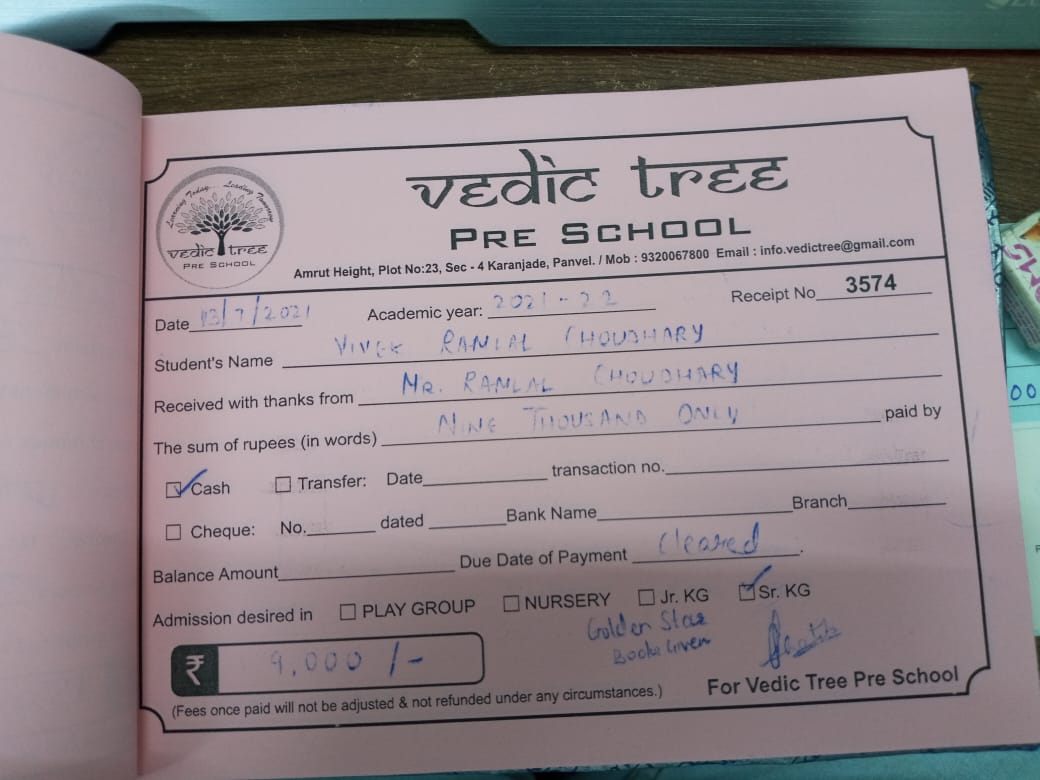 Learning Today... Leading Tomorrow
vedic tree
PRE SCHOOL
vedic tree
PRE SCHOOL
Amrut Height, Plot No:23, Sec - 4 Karanjade, Panvel. / Mob : 9320067800 Email : info.vedictree@gmail.com
Date 13/7/2021 Academic year: 2021-22 Receipt No 3574
Student's Name VIVEK RAMLAL CHOUDHARY
Received with thanks from MR. RAMLAL CHOUDHARY
The sum of rupees (in words) NINE THOUSAND ONLY paid by
Cash Transfer: Date transaction no.
Cheque: No. dated Bank Name Branch
Balance Amount Due Date of Payment Cleared
Admission desired in PLAY GROUP NURSERY Jr. KG Sr. KG
Golden Star
Books Given
₹ 9,000/-
(Fees once paid will not be adjusted & not refunded under any circumstances.) For Vedic Tree Pre School